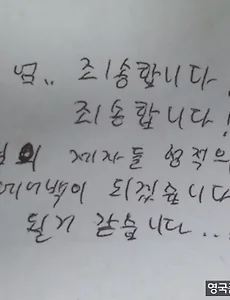 님.. 죄송합니다
죄송합니다!
의 제자들 영적으
이 되겠습니다
될거 같습니다...
영국